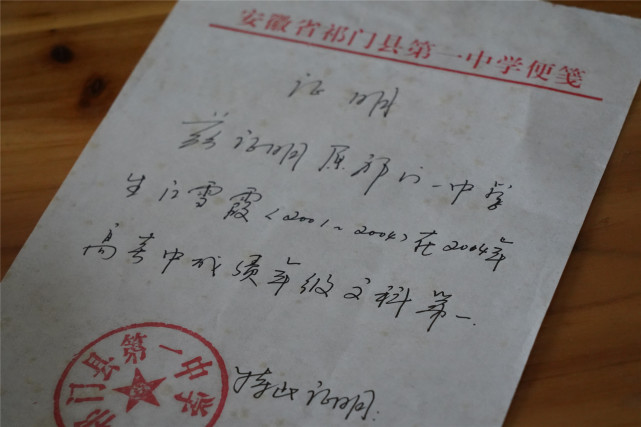 安徽省祁门县第一中学便笺
证明
兹证明原祁门一中学
生门雪霞(2001-2004)在2004年
高考中成绩年级文科第一.
特此证明.
祁门县第一中学